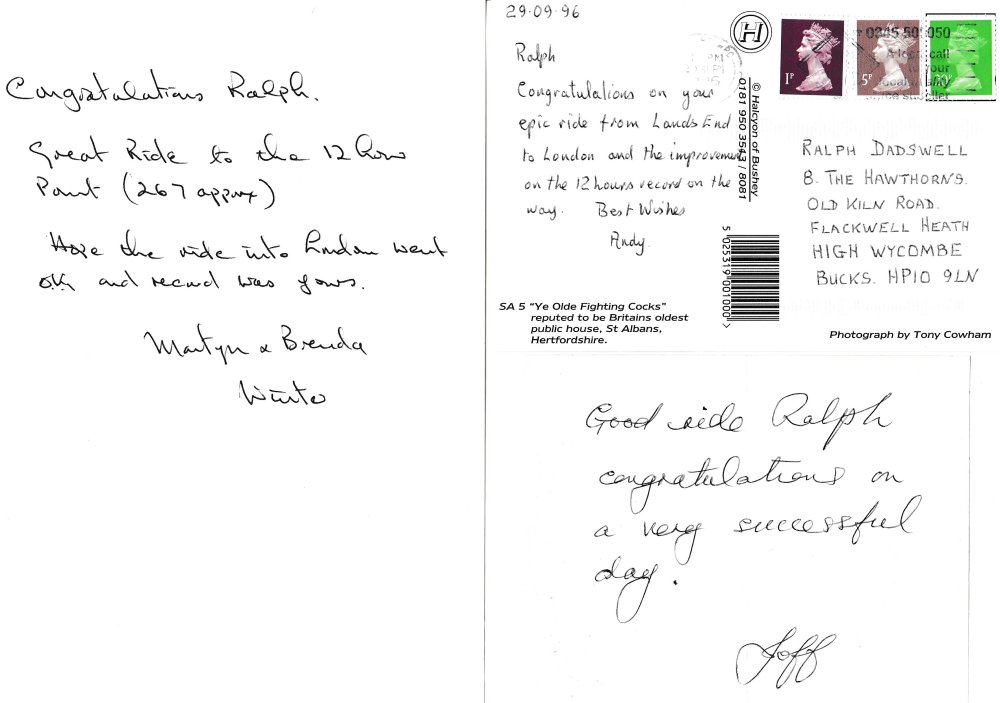 Congratulations Ralph.
Great Ride to the 12 hour
Point (267 approx)
Hope the ride into London went
ok and record was yours.
Martyn & Brenda
Winter
29·09·96
Ralph
Congratulations on your
epic ride from Lands End
to London and the improvement
on the 12 hours record on the
way. Best Wishes
Andy.
H
© Halcyon of Bushey
0181 950 3541 / 8081
1P
5P
20P
0345
050
A local call
RALPH DADSWELL
8. THE HAWTHORNS.
OLD KILN ROAD.
FLACKWELL HEATH
HIGH WYCOMBE
BUCKS. HP10 9LN
5 025319 001000 >
SA 5 "Ye Olde Fighting Cocks"
reputed to be Britains oldest
public house, St Albans,
Hertfordshire.
Photograph by Tony Cowham
Good ride Ralph
congratulations on
a very successful
day.